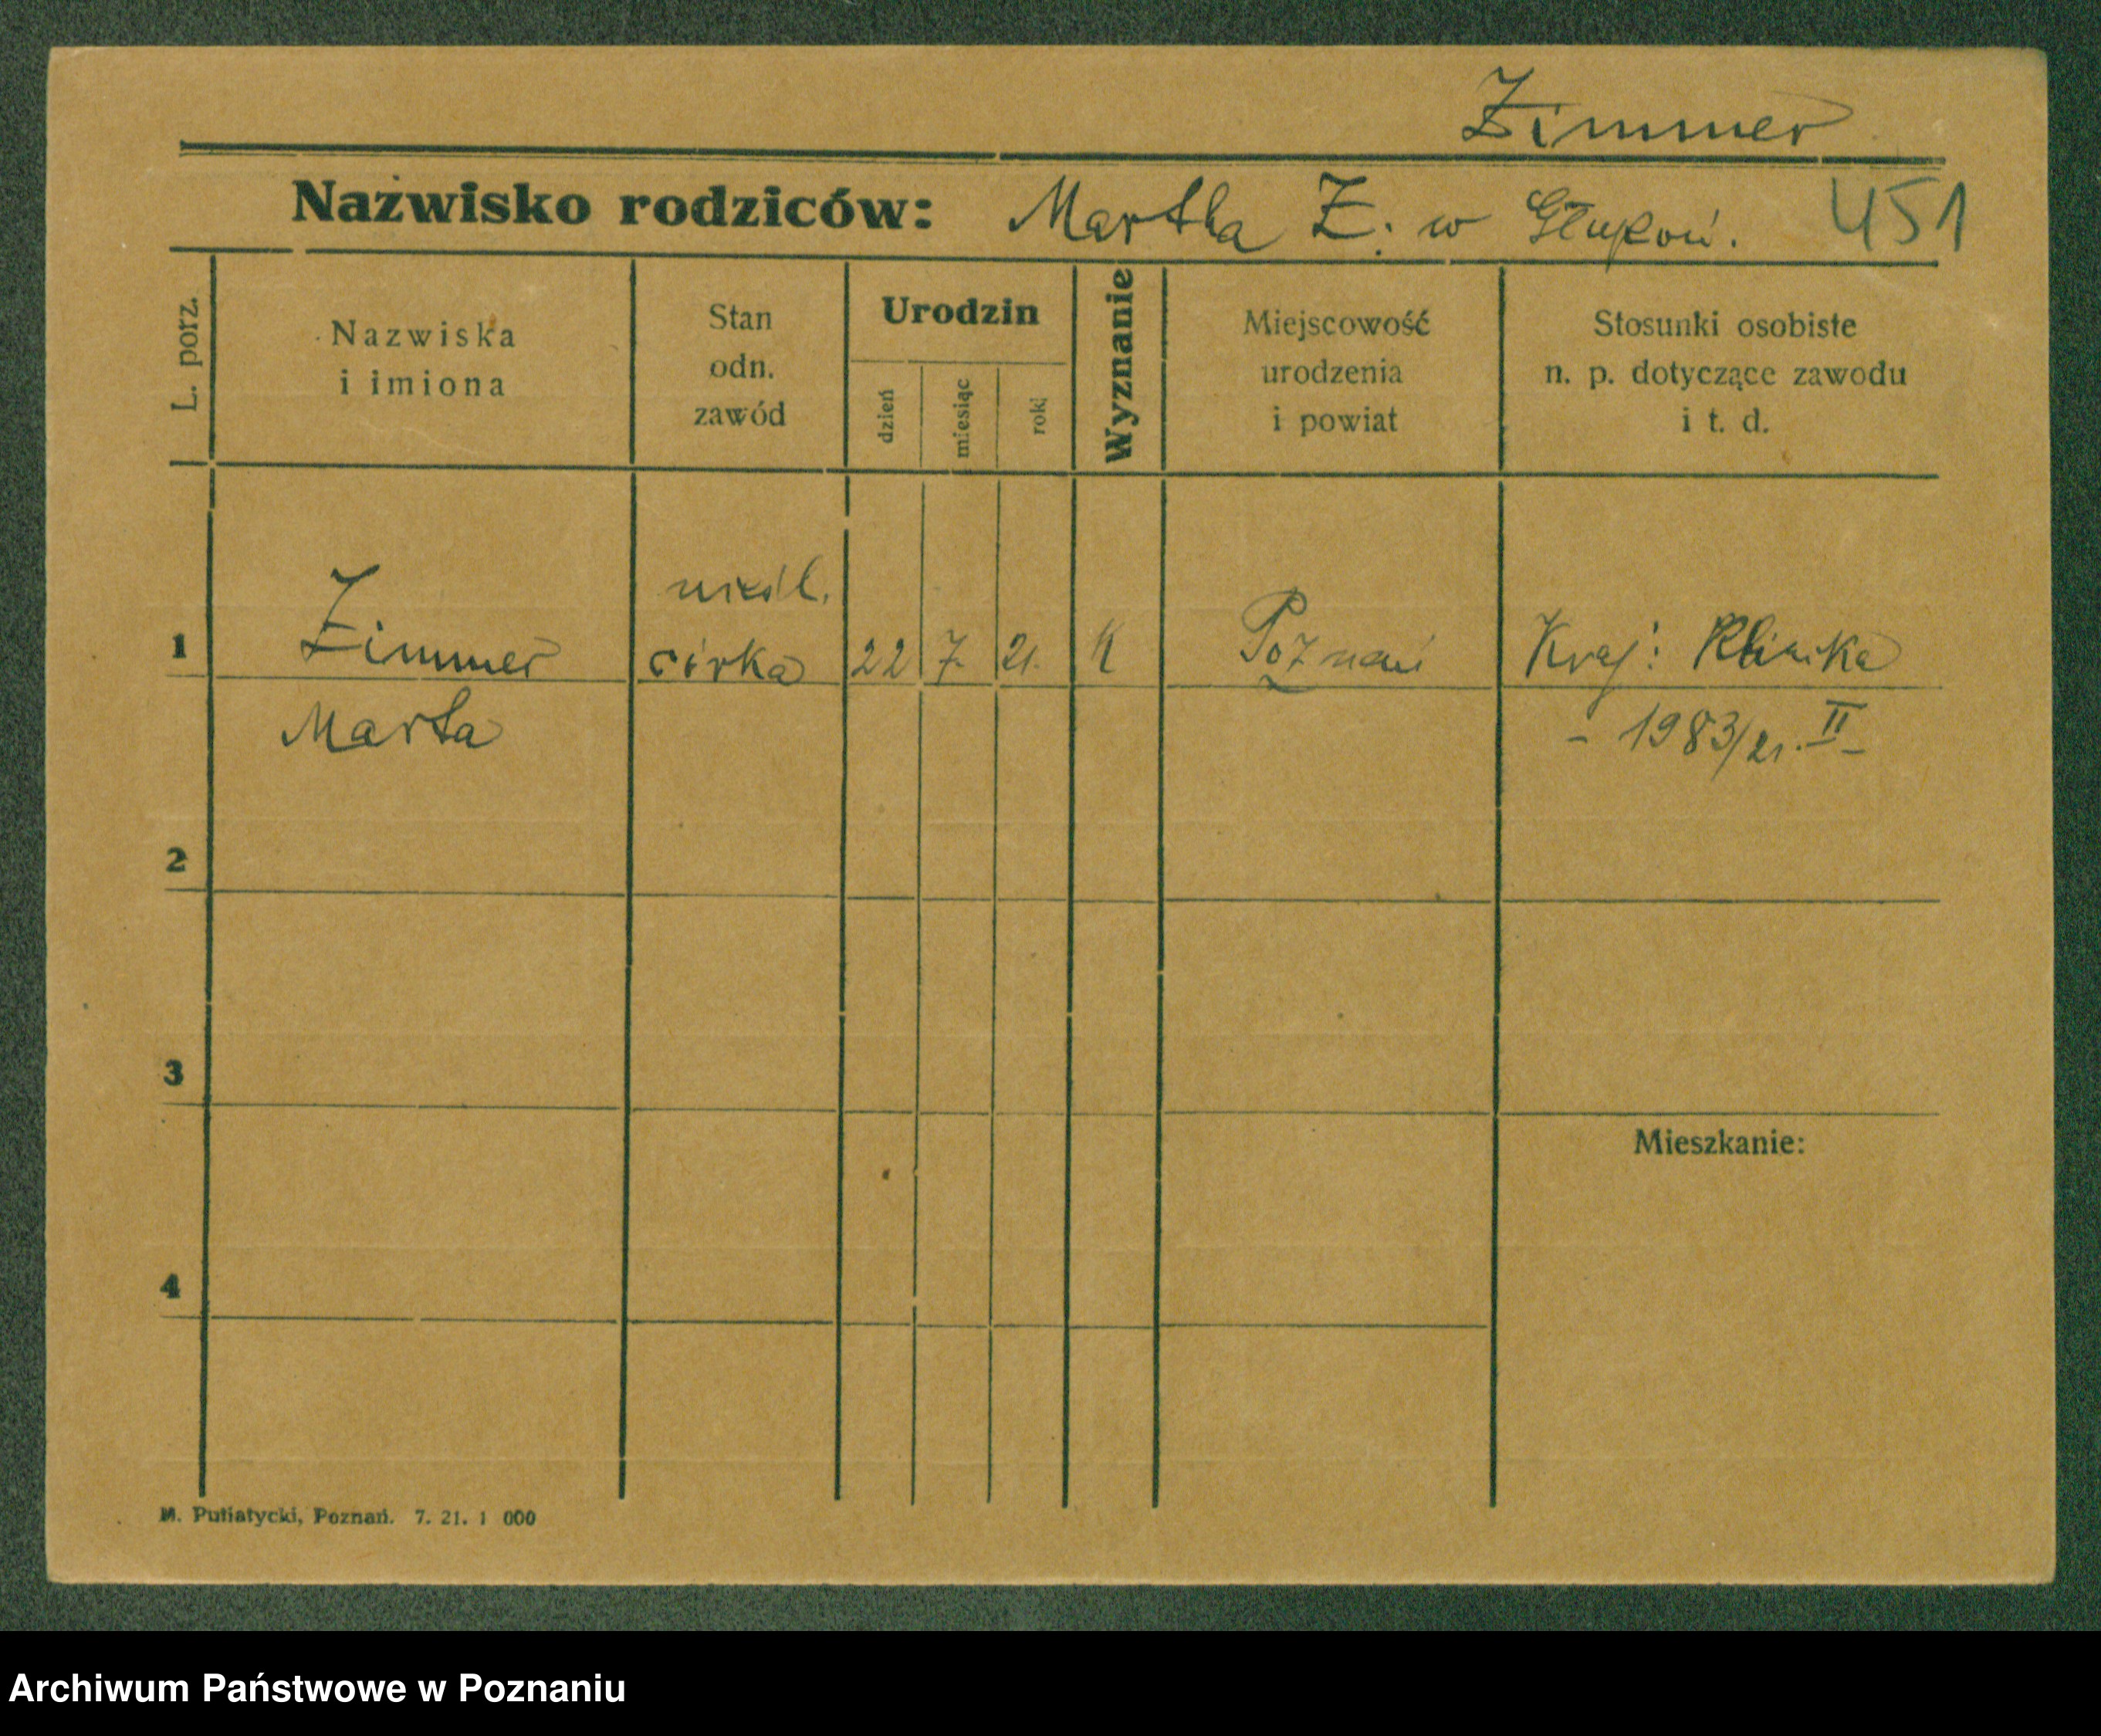 Zimmer
Nazwisko rodziców: Martha Z. w Głupoń. 451
L. porz.
Nazwiska
i imiona
Stan
odn.
zawód
Urodzin
dzień
miesiąc
rok
Wyznanie
Miejscowość
urodzenia
i powiat
Stosunki osobiste
n. p. dotyczące zawodu
i t. d.
1
Zimmer
Marta
córka
22 7. 21. K
Poznań
Kraj: Klinika
- 1983/21. II -
2
3
4
Mieszkanie:
M. Putiatycki, Poznań. 7. 21. 1 000
Archiwum Państwowe w Poznaniu